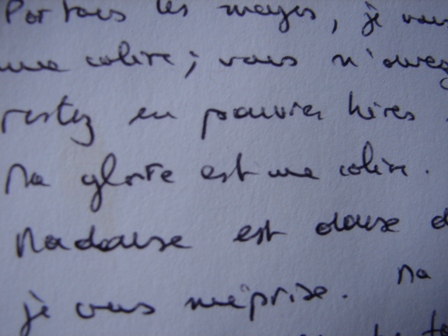 Par tous les moyens, je vous
une colère ; vous n'avez
restez en pauvres hères
Ma gloire est une colère.
Ma danse est danse d
je vous méprise. Ma